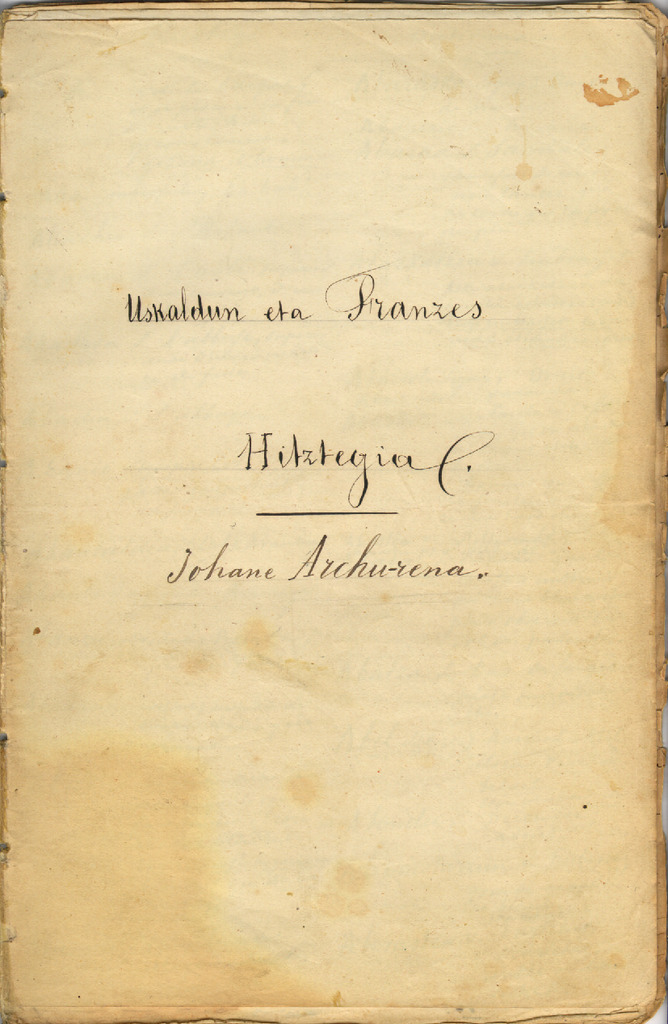 Uskaldun eta Franzes
Hitztegia.
Johane Archu-rena.